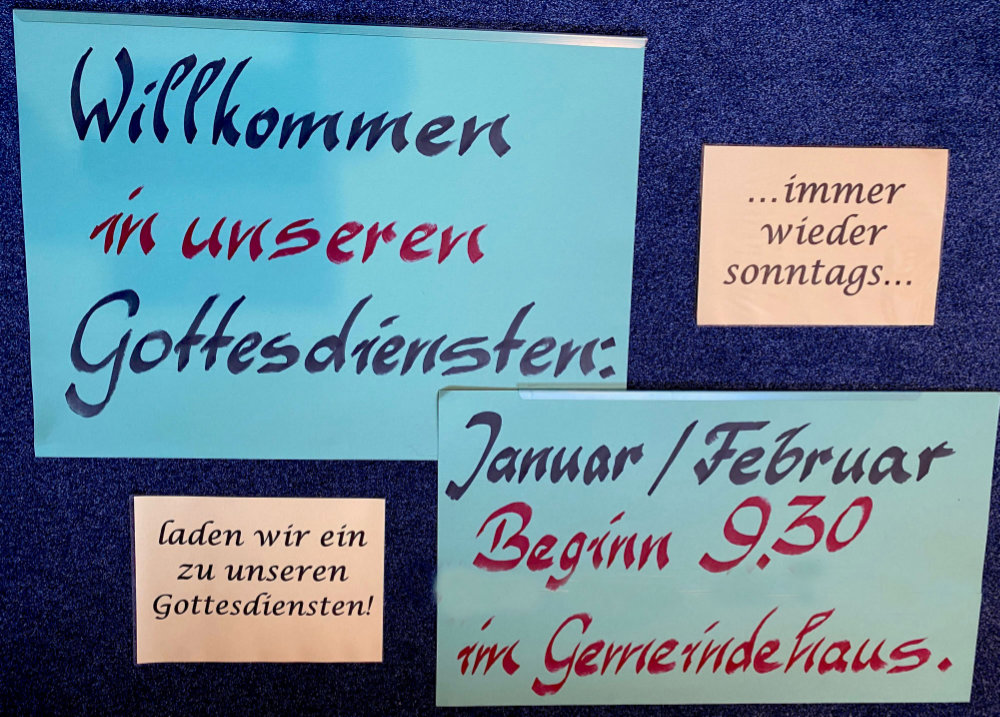 Willkommen
in unseren
Gottesdiensten:
...immer
wieder
sonntags...
laden wir ein
zu unseren
Gottesdiensten!
Januar / Februar
Beginn 9.30
im Gemeindehaus.